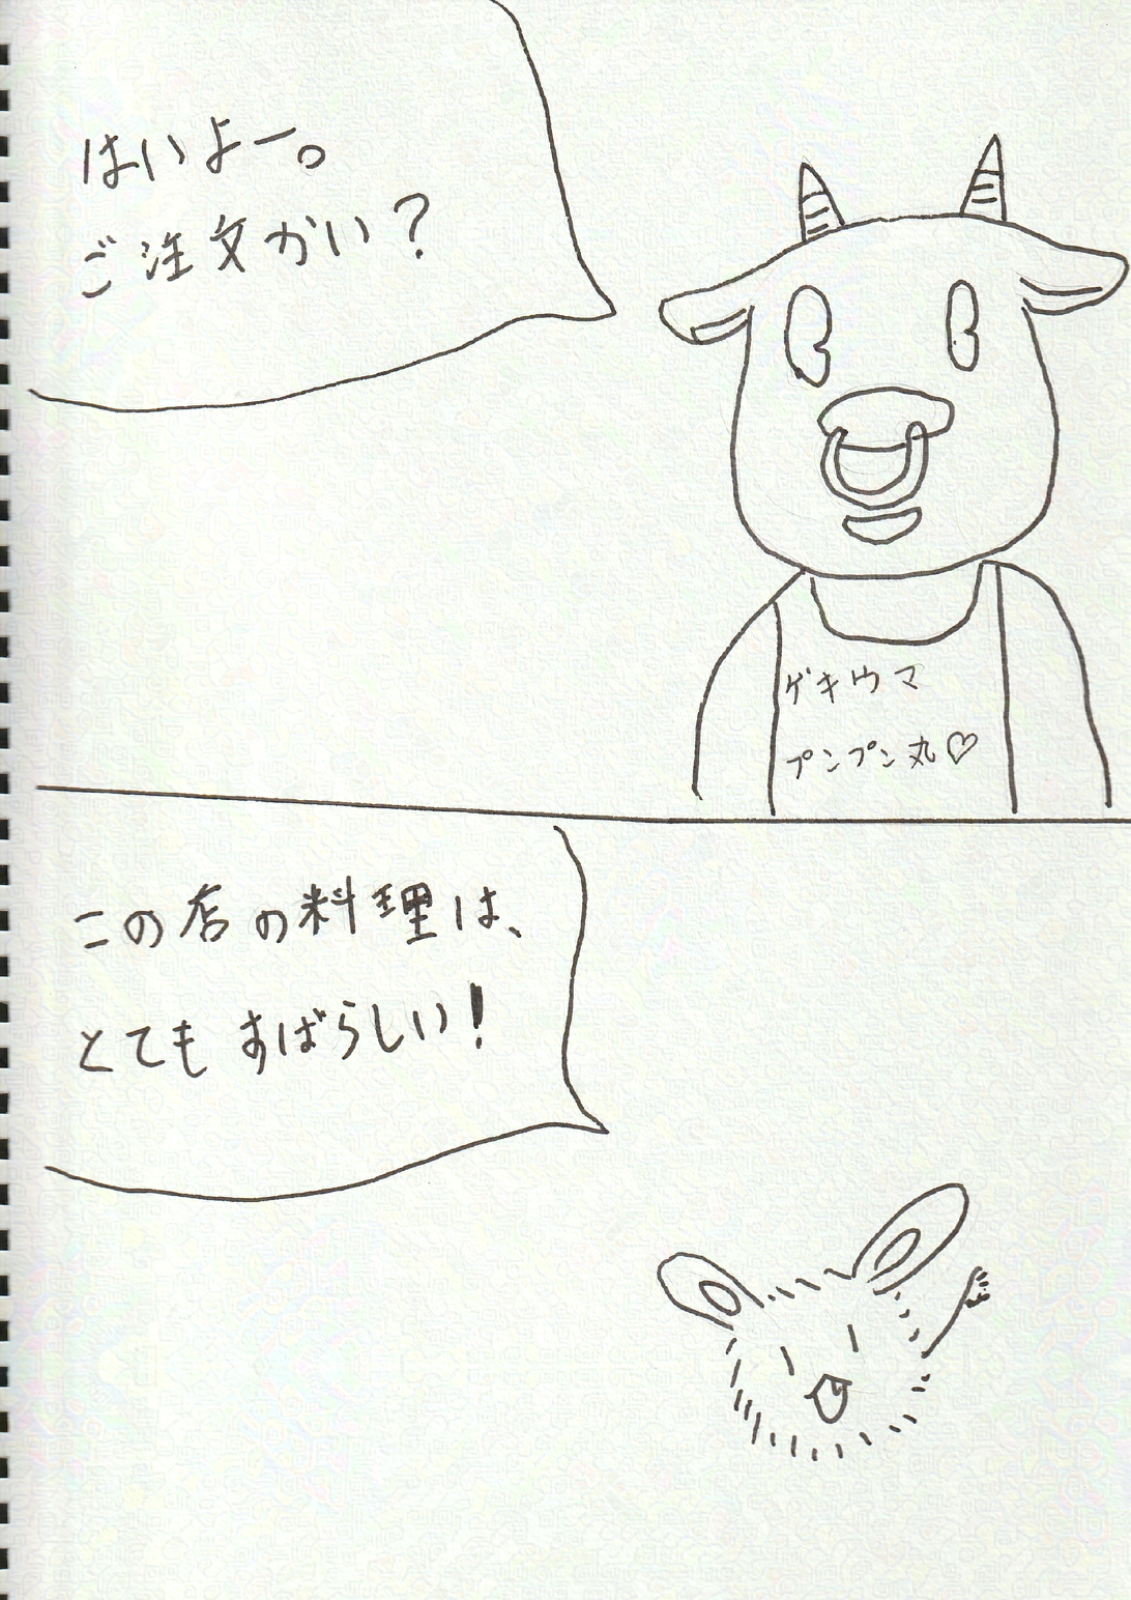 はいよー。
ご注文かい？
ゲキウマ
プンプン丸♡
この店の料理は、
とてもすばらしい！